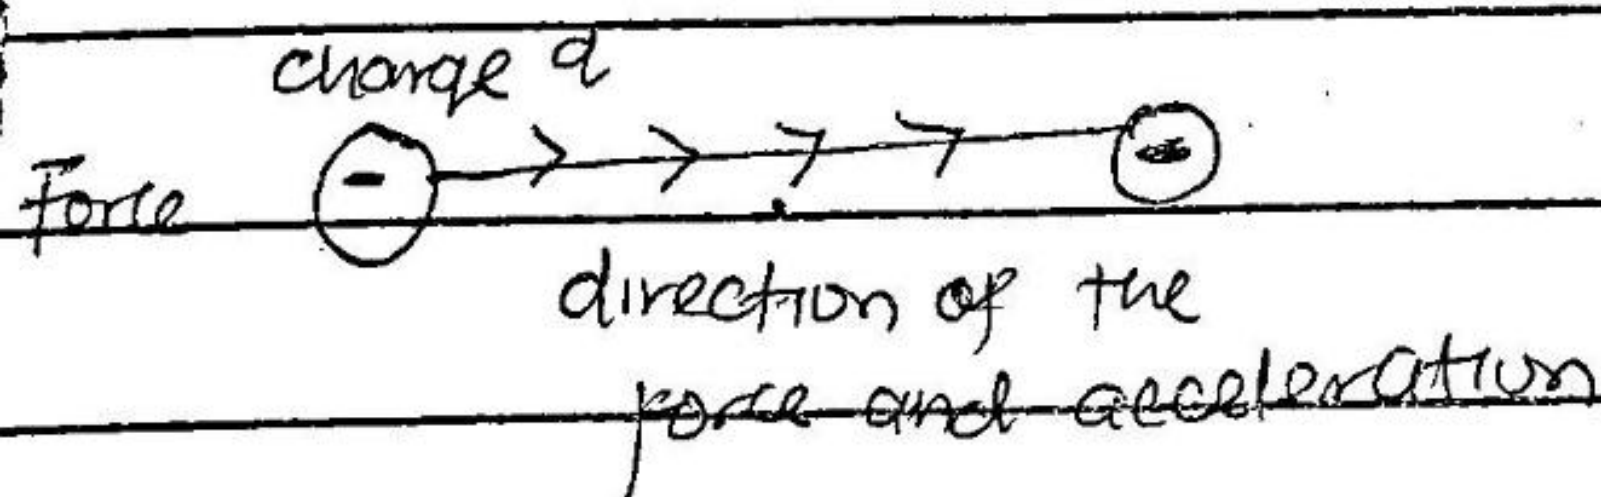 charge q
Force - -
direction of the
force and acceleration